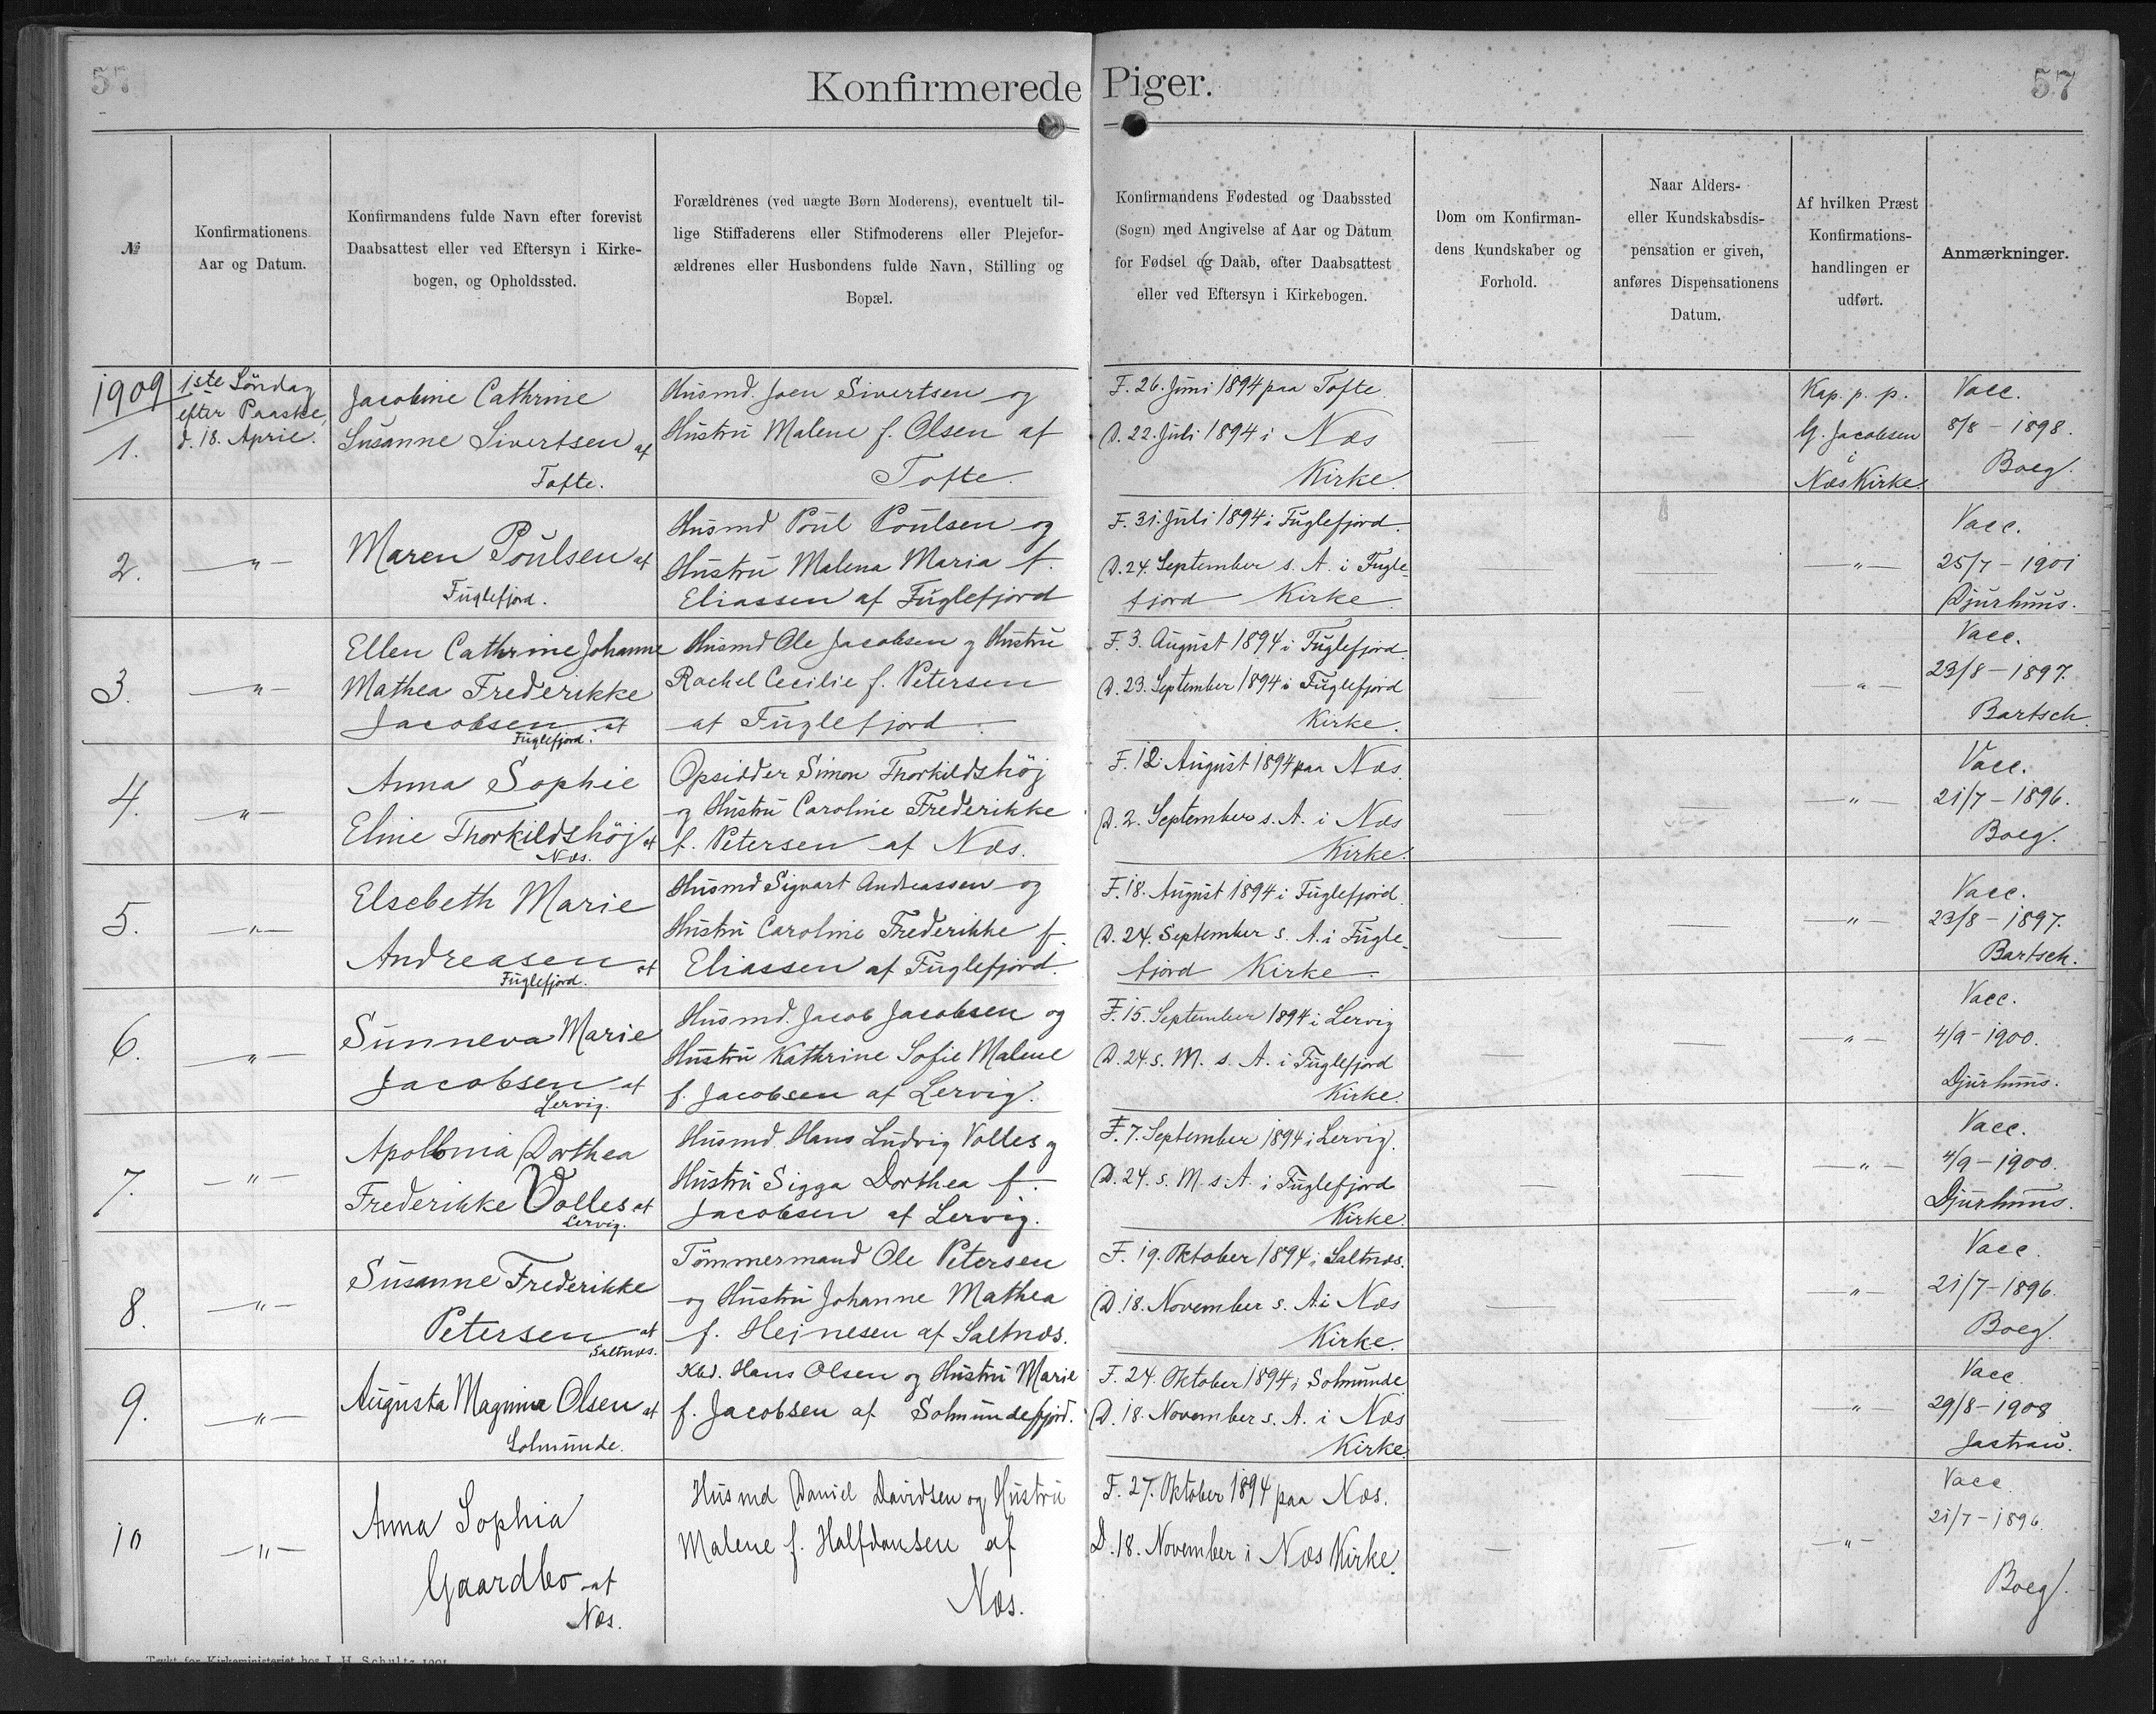 57
Konfirmerede Piger.
57
№
Konfirmationens
Aar og Datum.
Konfirmandens fulde Navn efter forevist
Daabsattest eller ved Eftersyn i Kirke-
bogen, og Opholdssted.
Forældrenes (ved uægte Børn Moderens), eventuelt til-
lige Stiffaderens eller Stifmoderens eller Plejefor-
ældrenes eller Husbondens fulde Navn, Stilling og
Bopæl.
Konfirmandens Fødested og Daabssted
(Sogn) med Angivelse af Aar og Datum
for Fødsel og Daab, efter Daabsattest
eller ved Eftersyn i Kirkebogen.
Dom om Konfirman-
dens Kundskaber og
Forhold.
Naar Alders-
eller Kundskabsdis-
pensation er given,
anføres Dispensationens
Datum.
Af hvilken Præst
Konfirmations-
handlingen er
udført.
Anmærkninger.
1909
1.
1ste Söndag
efter Paaske,
d. 18. April.
Jacobine Cathrine
Susanne Sivertsen af
Tofte.
Husmd. Joen Sivertsen og
Hustru Malene f. Olsen af
Tofte.
F. 26. Juni 1894 paa Tofte.
D. 22. Juli 1894 i Næs
Kirke.
—
—
Kap. p. p.
G. Jacobsen
i
Næs Kirke.
Vacc.
8/8 – 1898.
Boeg.
2.
—„—
Maren Poulsen af
Fuglefjord.
Husmd Poul Poulsen og
Hustru Malena Maria f.
Eliassen af Fuglefjord
F. 31. Juli 1894 i Fuglefjord.
D. 24. September s. A. i Fugle-
fjord Kirke.
—
—
—„—
Vacc.
25/7 – 1901
Djurhuus.
3.
—„—
Ellen Cathrine Johanne
Mathea Frederikke
Jacobsen af
Fuglefjord.
Husmd Ole Jacobsen og Hustru
Rachel Cecilie f. Petersen
af Fuglefjord.
F. 3. August 1894 i Fuglefjord.
D. 23. September 1894 i Fuglefjord
Kirke.
—
—
—„—
Vacc.
23/8 – 1897.
Bartsch.
4.
—„—
Anna Sophie
Eline Thorkildshöj af
Næs.
Opsidder Simon Thorkildshöj
og Hustru Caroline Frederikke
f. Petersen af Næs.
F. 12. August 1894 paa Næs.
D. 2. September s. A. i Næs
Kirke.
—
—
—„—
Vacc.
21/7 – 1896.
Boeg.
5.
—„—
Elsebeth Marie
Andreasen af
Fuglefjord.
Husmd Sigvart Andreassen og
Hustru Caroline Frederikke f.
Eliassen af Fuglefjord.
F. 18. August 1894 i Fuglefjord.
D. 24. September s. A. i Fugle-
fjord Kirke.
—
—
—„—
Vacc.
23/8 – 1897.
Bartsch.
6.
—„—
Sunneva Marie
Jacobsen af
Lervig.
Husmd. Jacob Jacobsen og
Hustru Kathrine Sofie Malene
f. Jacobsen af Lervig.
F. 15. September 1894 i Lervig
D. 24. s. M. s. A. i Fuglefjord
Kirke.
—
—
—„—
Vacc.
4/9 – 1900.
Djurhuus.
7.
—„—
Apollonia Dorthea
Frederikke Volles af
Lervig.
Husmd. Hans Ludvig Volles og
Hustru Sigga Dorthea f.
Jacobsen af Lervig.
F. 7. September 1894 i Lervig.
D. 24. s. M. s. A. i Fuglefjord
Kirke.
—
—
—„—
Vacc.
4/9 – 1900.
Djurhuus.
8.
—„—
Susanne Frederikke
Petersen af
Saltnæs.
Tömmermand Ole Petersen
og Hustru Johanne Mathea
f. Hejnesen af Saltnæs.
F. 19. Oktober 1894 i Saltnæs.
D. 18. November s. A. i Næs
Kirke.
—
—
—„—
Vacc.
21/7 – 1896.
Boeg.
9.
—„—
Augusta Magnina Olsen af
Solmunde.
Kbd. Hans Olsen og Hustru Marie
f. Jacobsen af Solmundefjord.
F. 24. Oktober 1894 i Solmunde
D. 18. November s. A. i Næs
Kirke
—
—
—„—
Vacc.
29/8 – 1908
Jastrau.
10
—„—
Anna Sophia
Gaardbo af
Næs.
Husmd Daniel Davidsen og Hustru
Malene f. Halfdansen af
Næs.
F. 27. Oktober 1894 paa Næs.
D. 18. November i Næs Kirke.
—
—
—„—
Vacc.
21/7 – 1896.
Boeg.